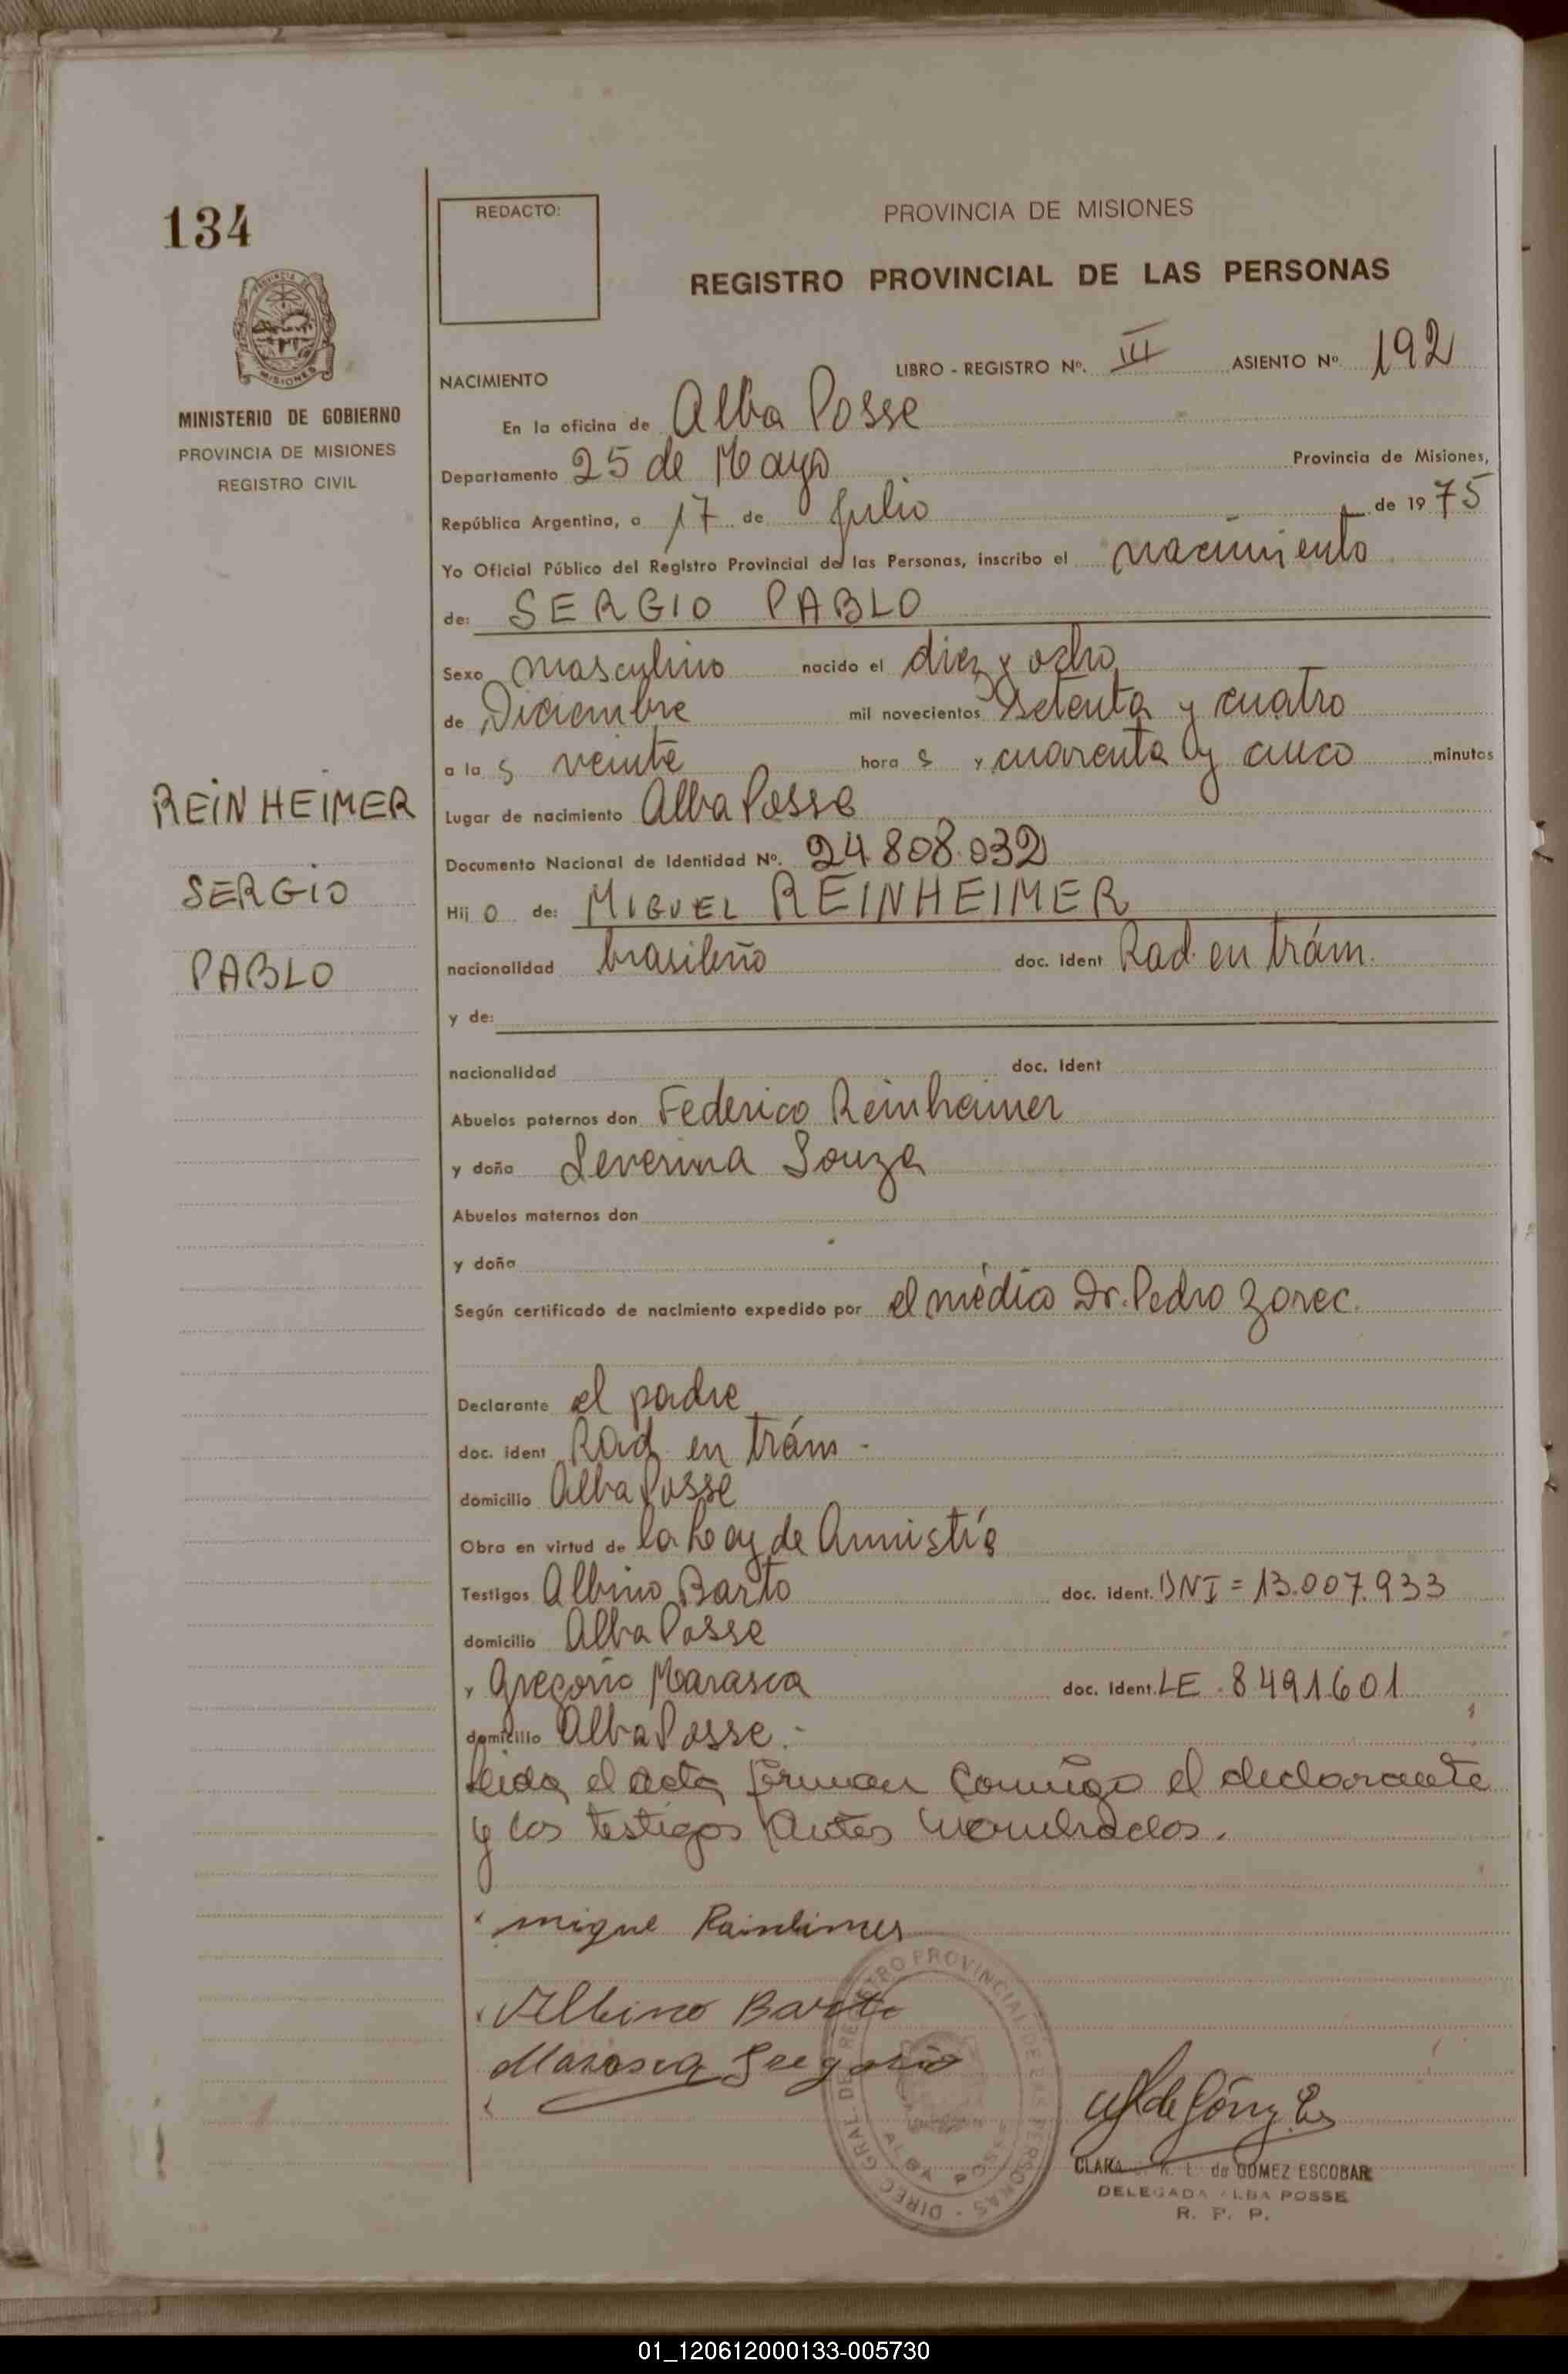 134
REDACTO:
PROVINCIA DE MISIONES
REGISTRO PROVINCIAL DE LAS PERSONAS
PROVINCIA DE
MISIONES
MINISTERIO DE GOBIERNO
PROVINCIA DE MISIONES
REGISTRO CIVIL
LIBRO - REGISTRO Nº. III ASIENTO Nº 192
NACIMIENTO
En la oficina de Alba Posse
Departamento 25 de Mayo Provincia de Misiones,
República Argentina, a 17 de Julio de 1975
Yo Oficial Público del Registro Provincial de las Personas, inscribo el nacimiento
de: SERGIO PABLO
Sexo masculino nacido el diez y ocho
de Diciembre mil novecientos setenta y cuatro
a las veinte horas y cuarenta y cinco minutos
REINHEIMER
SERGIO
PABLO
Lugar de nacimiento Alba Posse
Documento Nacional de Identidad Nº. 24.808.032
Hijo de: MIGUEL REINHEIMER
nacionalidad brasileño doc. ident Rad. en trám.
y de:
nacionalidad doc. Ident
Abuelos paternos don Federico Reinheimer
y doña Severina Souza
Abuelos maternos don
y doña
Según certificado de nacimiento expedido por el médico Dr. Pedro Zorec.
Declarante el padre
doc. ident Rad en trám -
domicilio Alba Posse
Obra en virtud de la Ley de Amnistía
Testigos Albino Barto doc. ident. DNI = 13.007.933
domicilio Alba Posse
y Gregorio Marasca doc. Ident. LE. 8491601
domicilio Alba Posse.-
Leida el acta firman conmigo el declarante
y los testigos antes nombrados.
Albino Barto
Marasca Gregorio
DIREC. GRAL. DEL REGISTRO PROVINCIAL DE LAS PERSONAS
ALBA POSSE
CLARA de GOMEZ ESCOBAR
DELEGADA ALBA POSSE
R. P. P.
01_120612000133-005730